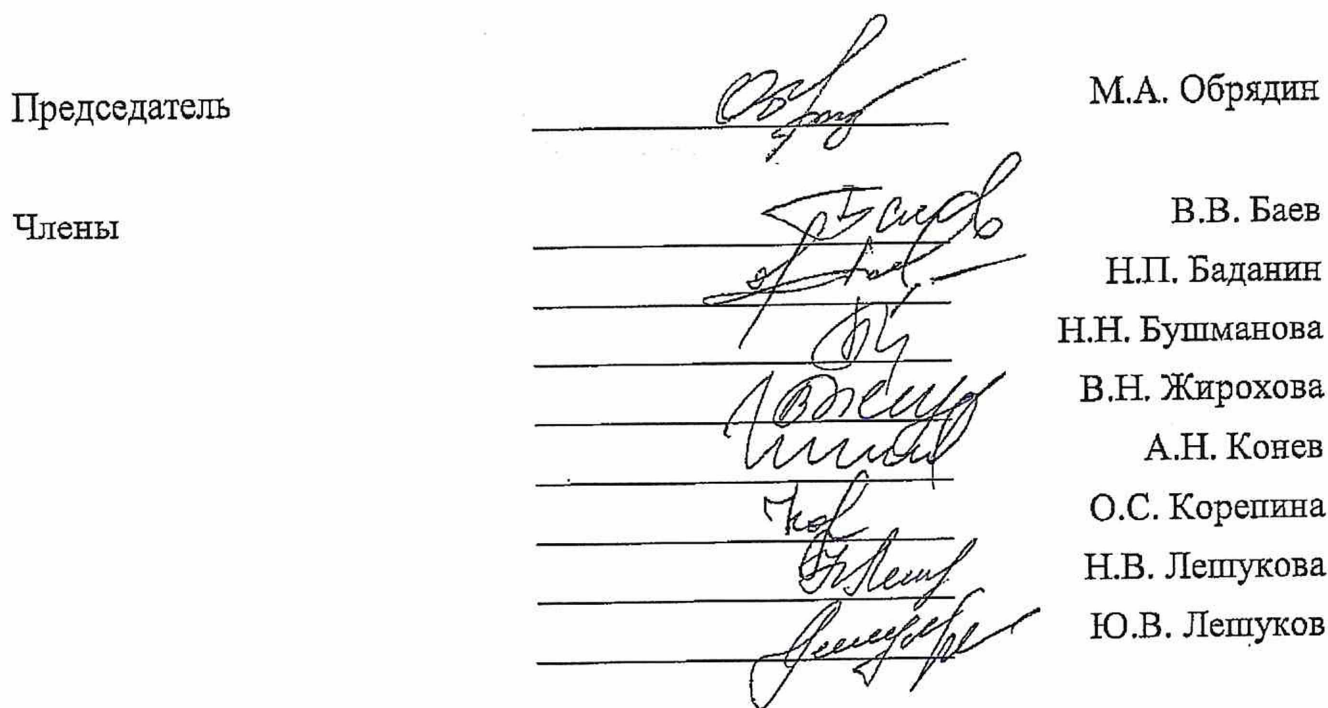 Председатель М.А. Обрядин
Члены В.В. Баев
Н.П. Баданин
Н.Н. Бушманова
В.Н. Жирохова
А.Н. Конев
О.С. Корепина
Н.В. Лешукова
Ю.В. Лешуков